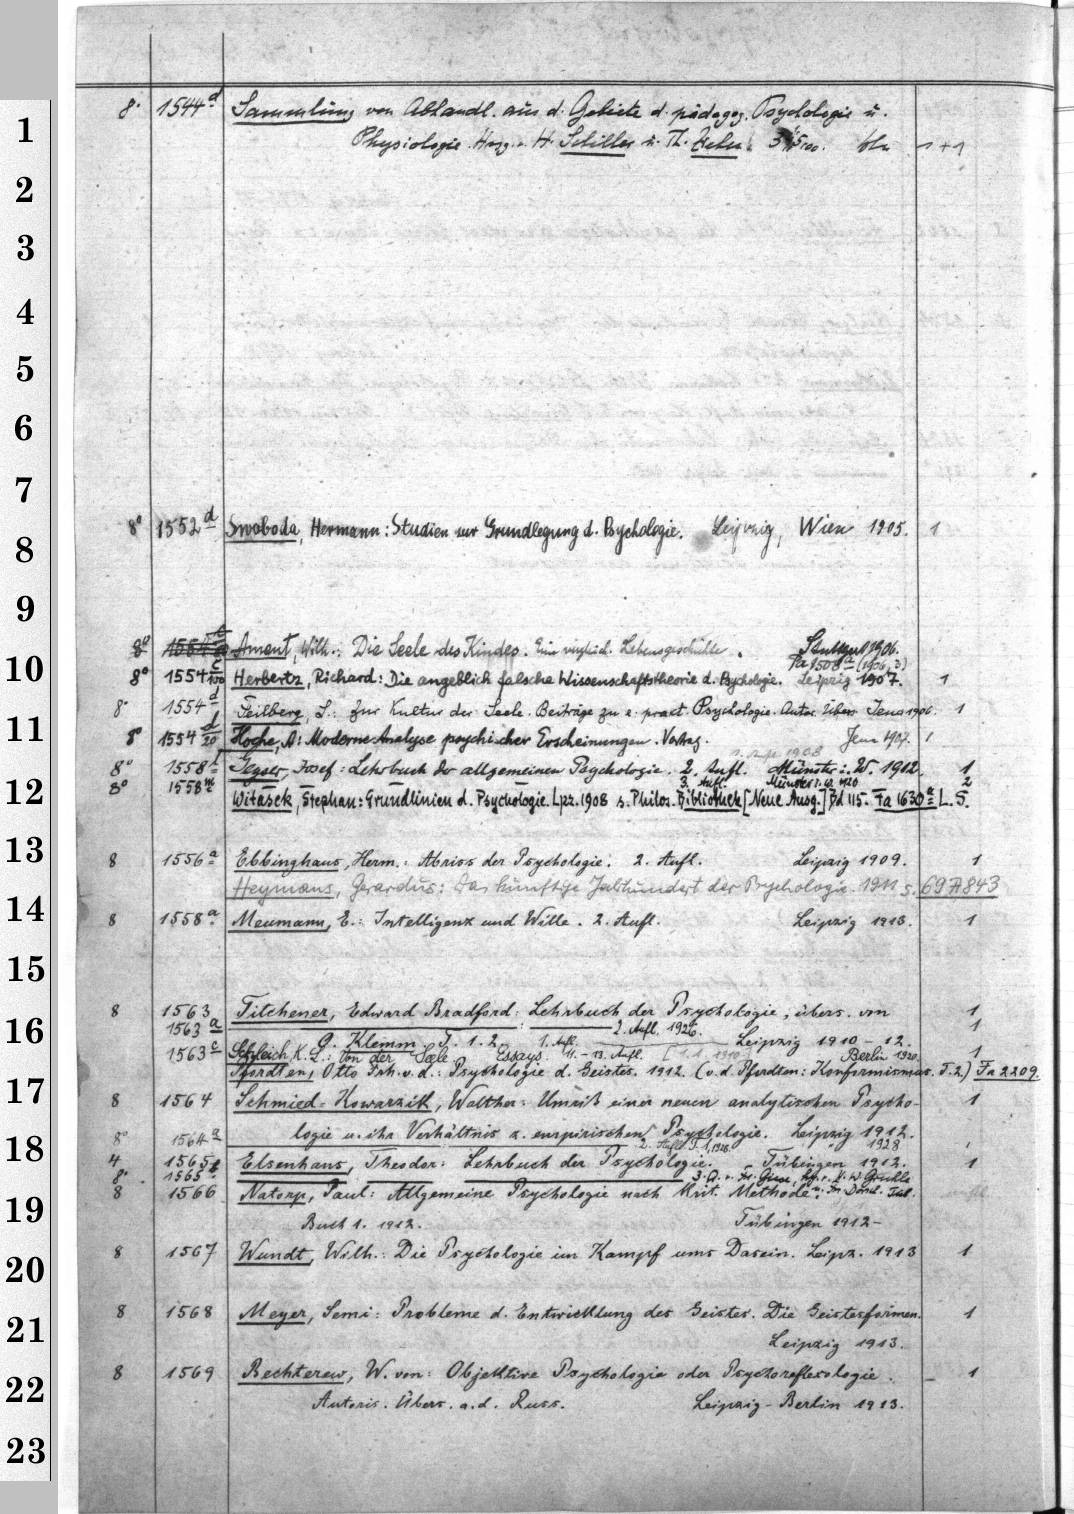 8° 1544 d Sammlung von Abhandl. aus d. Gebiete d. pädagog. Psychologie u.
1
Physiologie. Hrsg. v. H. Schiller u. Th. Ziehen. 1+1
2
3
4
5
6
7
8° 1552 d Swoboda, Hermann: Studien zur Grundlegung d. Psychologie. Leipzig, Wien 1905. 1
8
9
8° Ament, Wilh.: Die Seele des Kindes. Eine vergleich. Lebensgeschichte. Stuttgart 1906.
Fa 1508 a (1906,3)
10
8° 1554 c/100 Herbertz, Richard: Die angeblich falsche Wissenschaftstheorie d. Psychologie. Leipzig 1907. 1
8° 1554 d Feilberg, L.: Zur Kultur der Seele. Beiträge zu e. pract. Psychologie. Autor. Übers. Jena 1906. 1
11
8° 1554 d/20 Hoche, A: Moderne Analyse psychischer Erscheinungen. Vortrag. Jena 1907. 1
8° 1558 Geyser, Josef: Lehrbuch der allgemeinen Psychologie. 2. Aufl. Münster i. W. 1912. 1
8° 1558 3. Aufl. Münster i. W. 1920 2
12
Witasek, Stephan: Grundlinien d. Psychologie. Lpz. 1908 s. Philos. Bibliothek [Neue Ausg.] Bd 115. Fa 1630 a L. S.
13
8 1556 a Ebbinghaus, Herm.: Abriss der Psychologie. 2. Aufl. Leipzig 1909. 1
Heymans, Gerardus: Das künftige Jahrhundert der Psychologie. 1911 s. 69 A 843
14
8 1558 a Meumann, E.: Intelligenz und Wille. 2. Aufl. Leipzig 1913. 1
15
8 1563 Titchener, Edward Bradford: Lehrbuch der Psychologie, übers. von 1
1563 a 2. Aufl. 1926. 1
16
G. Klemm T. 1. 2. Leipzig 1910-12.
1563 c Schleich, K. L.: Von der Seele Essays. 11.-13. Aufl. Berlin 1920. 1
Pfordten, Otto Frh. v. d.: Psychologie d. Geistes. 1912. (v. d. Pfordten: Konformismus. T. 2.) Fa 2209.
17
8 1564 Schmied-Kowarzik, Walther: Umriß einer neuen analytischen Psycho- 1
logie u. ihr Verhältnis z. empirischen Psychologie. Leipzig 1912.
8° 1564 a 1928
18
4 1565 Elsenhans, Theodor: Lehrbuch der Psychologie. Tübingen 1912. 1
8° 1565 3. A. v. Fr. Giese,
8 1566 Natorp, Paul: Allgemeine Psychologie nach krit. Methode.
19
Buch 1. 1912. Tübingen 1912-
8 1567 Wundt, Wilh.: Die Psychologie im Kampf ums Dasein. Leipz. 1913 1
20
8 1568 Meyer, Semi: Probleme d. Entwicklung des Geistes. Die Geistesformen. 1
21
Leipzig 1913.
8 1569 Bechterew, W. von: Objektive Psychologie oder Psychoreflexologie. 1
22
Autoris. Übers. a. d. Russ. Leipzig-Berlin 1913.
23